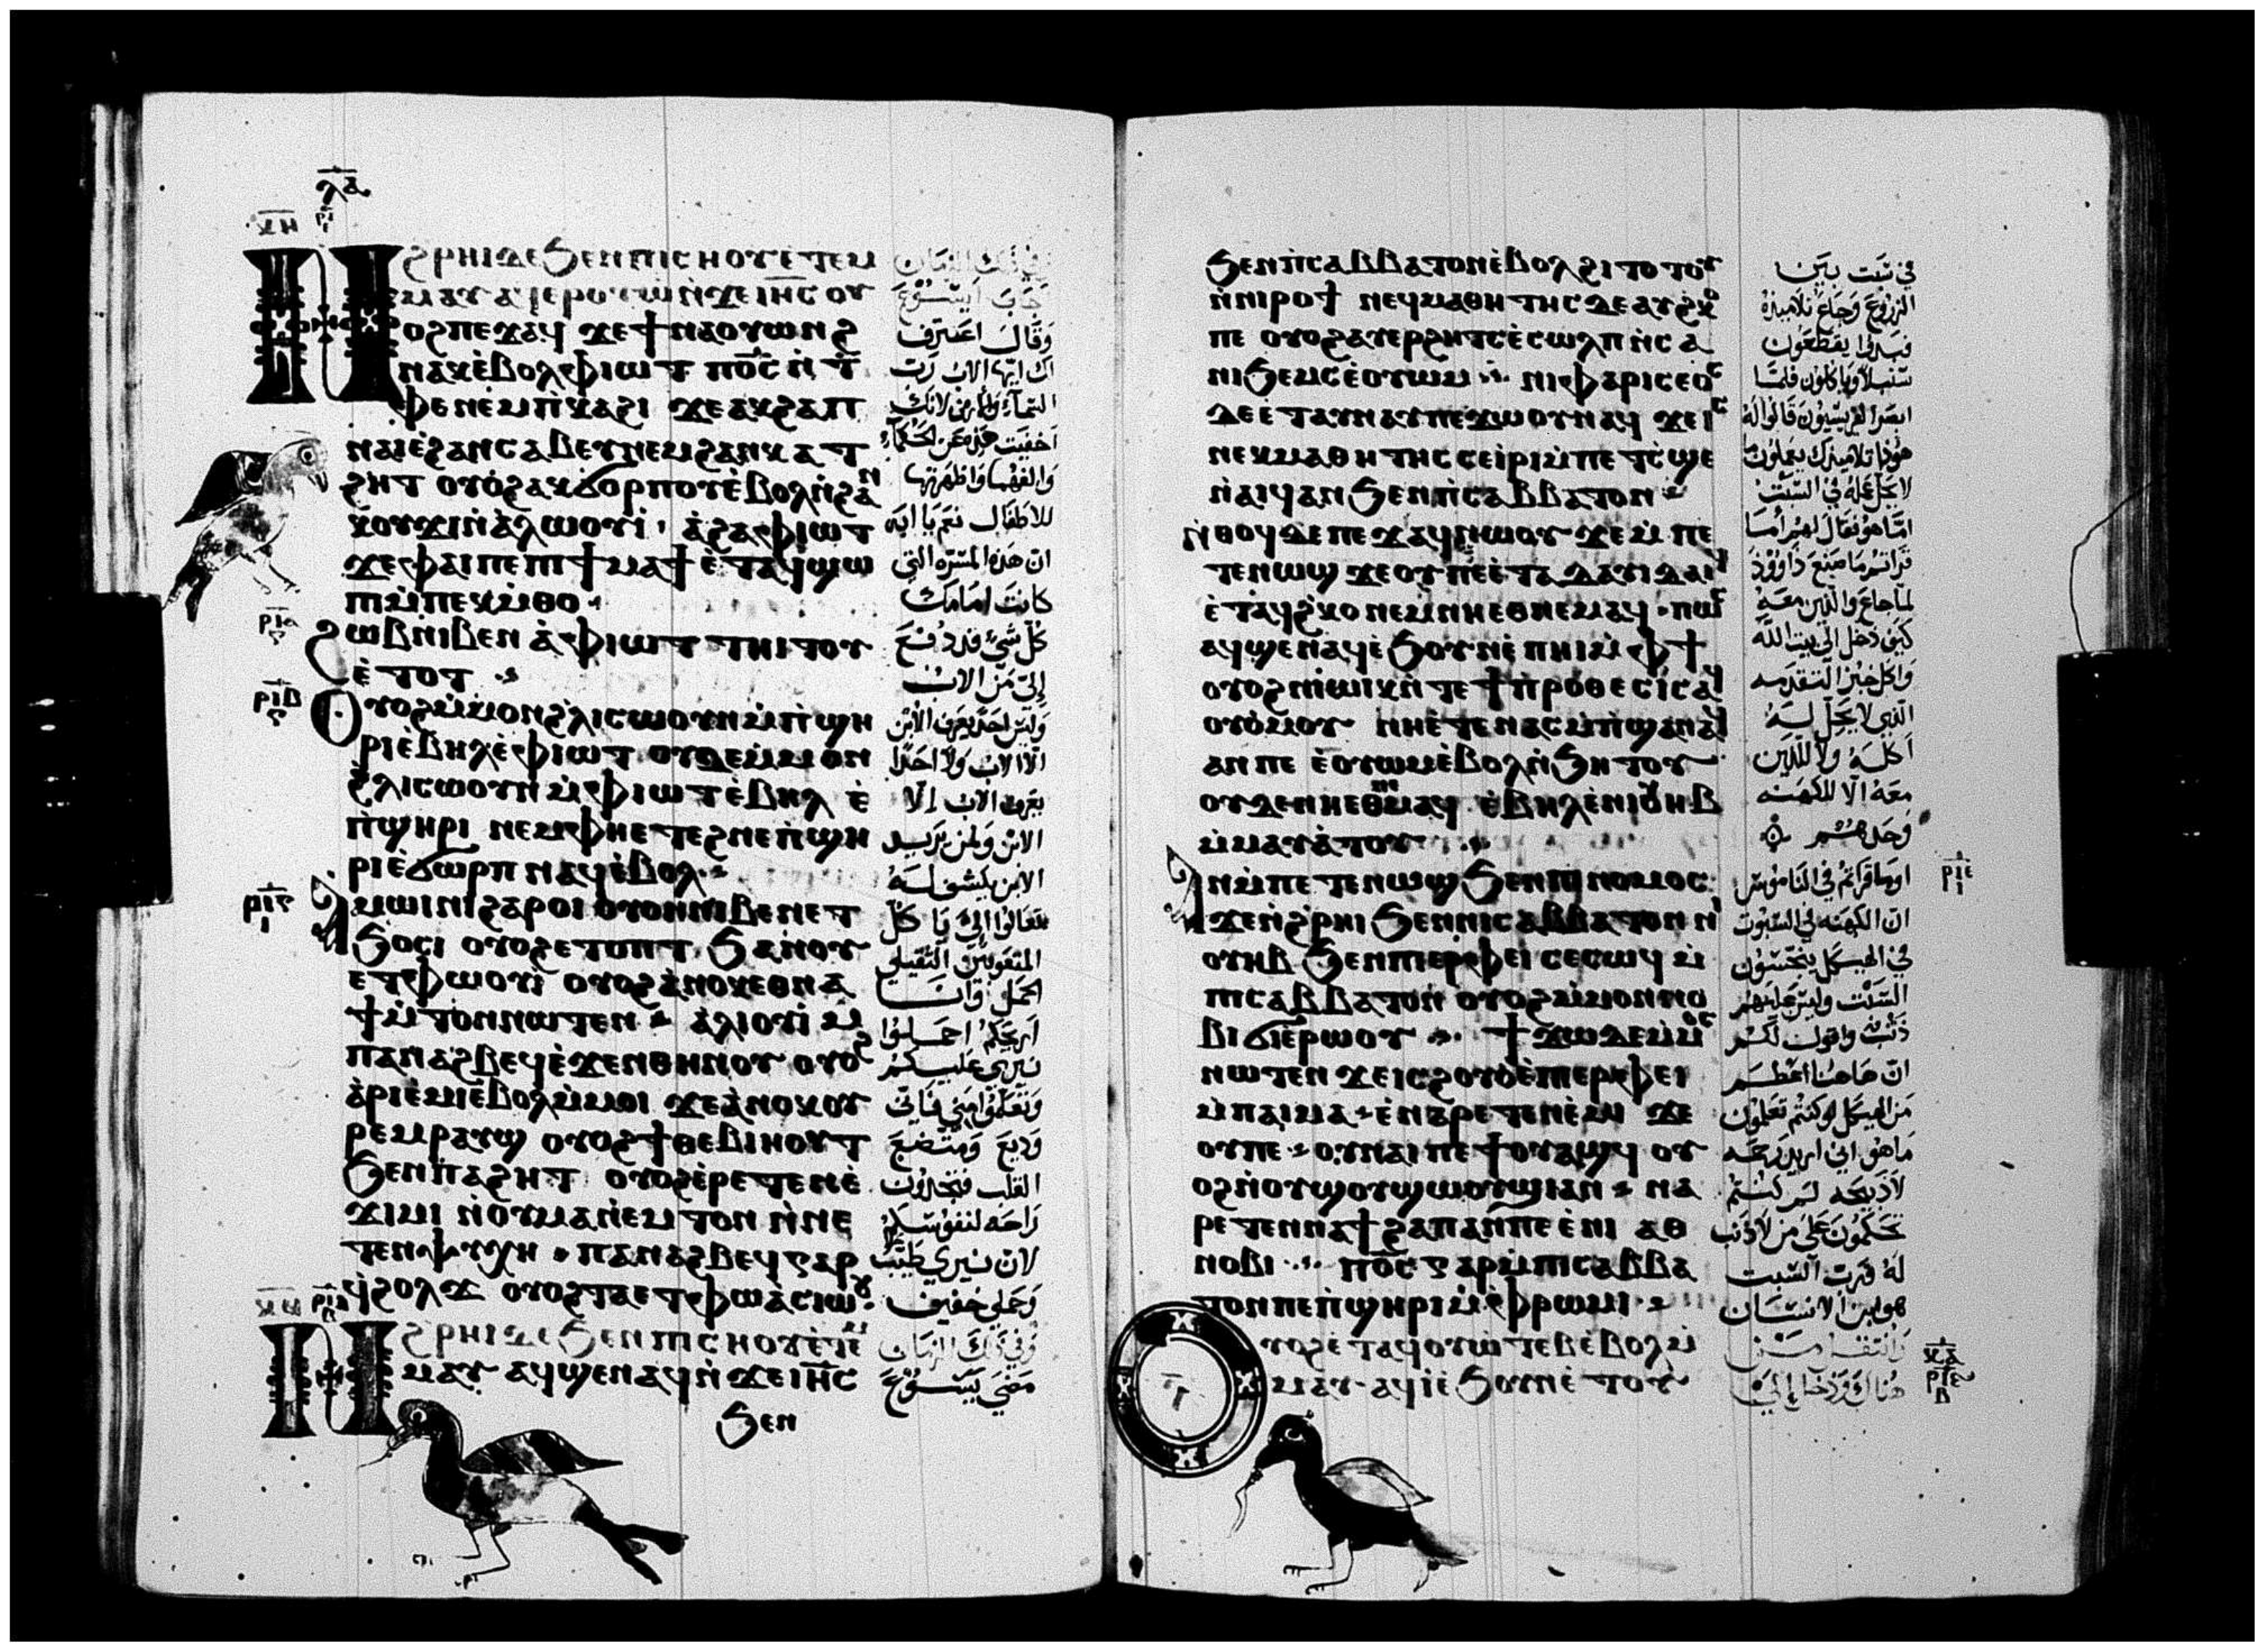 ⲗⲁ
ⲣⲓ
ϦⲢⲎⲒⲆⲈϦⲈⲚⲠⲒⲤⲎⲞⲨⲈ̀ⲦⲈⲘ
ⲙⲁⲩ ⲁϥⲉⲣⲟⲩⲱ̀ⲛ̀ϫⲉⲓⲏ̅ⲥ̅ ⲟⲩ
ⲟϩⲡⲉϫⲁϥ ϫⲉϯⲛⲁⲟⲩⲱⲛϩ
ⲛⲁⲕⲉ̀ⲃⲟⲗⲫⲓⲱⲧ ⲡⲟ̅ⲥ̅ ⲛ̀ⲧ
ⲫⲉⲛⲉⲙⲡ̀ⲕⲁϩⲓ ϫⲉⲁⲕϩⲁⲡ
ⲛⲁⲓⲉ̀ϩⲁⲛⲥⲁⲃⲉⲩⲛⲉⲙϩⲁⲛⲕⲁⲧ
ϩⲏⲧ ⲟⲩⲟϩⲁⲕϭⲟⲣⲡⲟⲩⲉ̀ⲃⲟⲗⲛ̀ϩⲁⲛ
ⲕⲟⲩϫⲓⲛ̀ⲁ̀ⲗⲱⲟⲩⲓ̀ ⲁ̀ϩⲁⲫⲓⲱⲧ
ϫⲉⲫⲁⲓⲡⲉⲡⲓϯⲙⲁϯ ⲉ̀ⲧⲁϥϣⲱ
ⲡⲓⲙ̀ⲡⲉⲕⲙ̀ⲑⲟ
ϩⲱⲃⲛⲓⲃⲉⲛ ⲁ̀ⲫⲓⲱⲧ ⲧⲏⲓⲧⲟⲩ
ⲉ̀ⲧⲟⲧ
ⲟⲩⲟϩⲙ̀ⲙⲟⲛϩⲗⲓⲥⲱⲟⲩⲛⲙ̀ⲡ̀ϣⲏ
ⲣⲓⲉ̀ⲃⲏⲗⲉ̀ⲫⲓⲱⲧ ⲟⲩⲇⲉⲙ̀ⲙⲟⲛ
ϩⲗⲓⲥⲱⲟⲩⲛⲙ̀ⲫⲓⲱⲧⲉ̀ⲃⲏⲗ ⲉ̀
ⲡ̀ϣⲏⲣⲓ ⲛⲉⲙⲫⲏⲉⲧⲉϩⲛⲉⲡ̀ϣⲏ
ⲣⲓⲉ̀ϭⲱⲣⲡ ⲛⲁϥⲉ̀ⲃⲟⲗ
ⲁⲙⲱⲓⲛⲓϩⲁⲣⲟⲓ ⲟⲩⲟⲛⲛⲓⲃⲉⲛⲉⲧ
ϧⲟⲥⲓ ⲟⲩⲟϩⲉⲧⲟⲡⲧ ϧⲁⲛⲟⲩ
ⲉⲧⲫⲱⲟⲩⲓ̀ ⲟⲩⲟϩⲁ̀ⲛⲟⲕⲉⲑⲛⲁ
ϯⲙ̀ⲧⲟⲛⲛⲱⲧⲉⲛ ⲁ̀ⲗⲓⲟⲩⲓ̀ ⲙ̀
ⲡⲁⲛⲁϩⲃⲉϥⲉ̀ϫⲉⲛⲑⲏⲛⲟⲩ ⲟⲩⲟϩ
ⲁ̀ⲣⲓⲉ̀ⲙⲓⲉ̀ⲃⲟⲗⲙ̀ⲙⲟⲓ ϫⲉⲁ̀ⲛⲟⲕⲟⲩ
ⲣⲉⲙⲣⲁⲩϣ ⲟⲩⲟϩϯⲑⲉⲃⲓⲏⲟⲩⲧ
ϧⲉⲛⲡⲁϩⲏⲧ ⲟⲩⲟϩⲉ̀ⲣⲉⲧⲉⲛⲉ̀
ϫⲓⲙⲓ ⲛ̀ⲟⲩⲙⲁⲛ̀ⲉⲙⲧⲟⲛ ⲛ̀ⲛⲉ
ⲧⲉⲛⲯⲩⲭⲏ ⲡⲁⲛⲁϩⲃⲉϥⲅⲁⲣ
ϥ̀ϩⲟⲗϫ ⲟⲩⲟϩⲧⲁⲉⲧⲫⲱⲁ̀ⲥⲓⲱⲟⲩ
ϦⲢⲎⲒⲆⲈϦⲈⲚⲠⲒⲤⲎⲞⲨⲈ̀ⲦⲈⲘ
ⲙⲁⲩ ⲁϥϣⲉⲛⲁϥⲛ̀ϫⲉⲓⲏ̅ⲥ̅
ϧⲉⲛ
ⲣⲓⲁ
ⲣⲓⲃ
ⲣⲓⲅ
وقال اعترف
لك ايها الاب رب
السماء والارض لانك
اخفيت هذه عن الحكماء
والفهما واظهرتها
للاطفال نعم يا ابه
ان هذه المسره التي
كانت امامك
كل شيء قد دفع
الي من الاب
وليس احد يعرف الابن
الا الاب ولا احدا
يعرف الاب الا
الابن ولمن يريد
الابن يكشف له
تعالوا الي يا كل
المتعوبين الثقيلي
الحمل وانا
اريحكم احملوا
نيري عليكم
وتعلموا مني فاني
وديع ومتضع
القلب فتجدون
راحه لنفوسكم
لان نيري طيب
وحملي خفيف
وفي ذلك الزمان
مضى يسوع
ϧⲉⲛⲡ̀ⲥⲁⲃⲃⲁⲧⲟⲛⲉ̀ⲃⲟⲗϩⲓⲧⲟⲧⲟⲩ
ⲛ̀ⲛⲓⲣⲟϯ ⲛⲉϥⲙⲁⲑⲏⲧⲏⲥⲇⲉⲁⲩϩⲕⲟ
ⲡⲉ ⲟⲩⲟϩⲁⲩⲉⲣϩⲏⲧⲥⲉ̀ⲥⲱⲗⲡ ⲛ̀ⲥⲁ
ⲛⲓϧⲉⲙⲥⲉ̀ⲟⲩⲱⲙ ⲛⲓⲫⲁⲣⲓⲥⲉⲟⲥ
ⲇⲉⲉ̀ⲧⲁⲩⲛⲁⲩⲡⲉϫⲱⲟⲩⲛⲁϥ ϫⲉⲓⲥ
ⲛⲉⲕⲙⲁⲑⲏⲧⲏⲥⲥⲉⲓ̀ⲣⲓⲙ̀ⲡⲉⲧⲥ̀ϣⲉ
ⲛ̀ⲁⲓϥⲁⲛϧⲉⲛⲡ̀ⲥⲁⲃⲃⲁⲧⲟⲛ
ⲛ̀ⲑⲟϥⲇⲉⲡⲉϫⲁϥⲛⲱⲟⲩ ϫⲉⲙ̀ⲡⲉ
ⲧⲉⲛⲱϣ ϫⲉⲟⲩⲡⲉⲉ̀ⲧⲁⲇⲁⲩⲓⲇⲁⲓϥ
ⲉ̀ⲧⲁϥϩ̀ⲕⲟ ⲛⲉⲙⲛⲏⲉⲑⲛⲉⲙⲁϥ ⲡⲱⲥ
ⲁϥϣⲉⲛⲁϥⲉ̀ϧⲟⲩⲛⲉ̀ⲡⲏⲓⲙ̀ⲫϯ
ⲟⲩⲟϩⲛⲓⲱⲓⲕⲛ̀ⲧⲉϯⲡ̀ⲣⲟⲑⲉⲥⲓⲥⲁϥ
ⲟⲩⲟ̀ⲙⲟⲩ ⲛⲏⲉ̀ⲧⲉⲛⲁⲥⲙ̀ⲡ̀ϣⲁⲛⲁϥ
ⲁⲛⲡⲉ ⲉ̀ⲟⲩⲱⲙⲉ̀ⲃⲟⲗⲛ̀ϧⲏⲧⲟⲩ
ⲟⲩⲇⲉⲛⲏⲉⲑⲛⲉⲙⲁϥ ⲉ̀ⲃⲏⲗⲉ̀ⲛⲓⲟⲩⲏⲃ
ⲙ̀ⲙⲁⲩⲁ̀ⲧⲟⲩ
ⲁⲛⲙ̀ⲡⲉⲧⲉⲛⲱϣϧⲉⲛⲡⲓⲛⲟⲙⲟⲥ
ϫⲉⲛ̀ϩ̀ⲣⲏⲓ ϧⲉⲛⲛⲓⲥⲁⲃⲃⲁⲧⲟⲛ ⲛⲓ
ⲟⲩⲏⲃ ϧⲉⲛⲡⲓⲉⲣⲫⲉⲓ ⲥⲉⲥⲱϥ ⲙ̀
ⲡⲓⲥⲁⲃⲃⲁⲧⲟⲛ ⲟⲩⲟϩⲙ̀ⲙⲟⲛⲛⲟ
ⲃⲓ ϭⲓⲉ̀ⲣⲱⲟⲩ ϯϫⲱⲇⲉⲙ̀ⲙⲟⲥ
ⲛⲱⲧⲉⲛ ϫⲉⲓⲥϩⲟⲩⲟ̀ⲉ̀ⲡⲓⲉⲣⲫⲉⲓ
ⲙ̀ⲡⲁⲓⲙⲁ ⲉ̀ⲛⲁⲣⲉⲧⲉⲛⲉ̀ⲙⲓ ϫⲉ
ⲟⲩⲡⲉ ⲟⲩⲛⲁⲓⲡⲉϯⲟⲩⲁϣϥ ⲟⲩ
ⲟϩⲛ̀ⲟⲩϣⲟⲩϣⲱⲟⲩϣⲓⲁⲛ ⲛⲁ
ⲣⲉⲧⲉⲛⲛⲁϯϩⲁⲡⲁⲛⲡⲉⲉ̀ⲛⲓ ⲁⲑ
ⲛⲟⲃⲓ ⲡⲟ̅ⲥ̅ ⲅⲁⲣⲙ̀ⲡⲓⲥⲁⲃⲃⲁ
ⲧⲟⲛⲡⲉⲡ̀ϣⲏⲣⲓⲙ̀ⲫ̀ⲣⲱⲙⲓ
ⲟⲩⲟϩⲉ̀ⲧⲁϥⲟⲩⲱ̀ⲧⲉⲃⲉ̀ⲃⲟⲗⲙ̀
ⲙⲁⲩ ⲁϥⲓ̀ⲉ̀ϧⲟⲩⲛⲉ̀ⲧⲟⲩ
في سبت بين
الزروع وجاع تلاميذه
فبدوا يقطعون
سنبلا وياكلون فلما
ابصر الفريسيون قالوا له
هوذا تلاميذك يعملون ما
لا يحل عمله في السبت
اما هو فقال لهم أما
قراتم ما صنع داوود
لما جاع والذين معه
كيف دخل الي بيت الله
واكل خبز التقدمه
الذي لا يحل له
اكله ولا للذين
معه الا للكهنه
وحدهم
اوما قراتم في الناموس
ان الكهنه في السبوت
في الهيكل ينجسون
السبت وليس عليهم
ذنب واقول لكم
ان هاهنا اعظم
من الهيكل لو كنتم تعلمون
ما هو اني اريد رحمه
لا ذبيحه لم كنتم
تحكمون على من لا ذنب
له فرب السبت
هو ابن الانسان
وانتقل من
هناك ودخل إلى
ⲣⲓⲉ